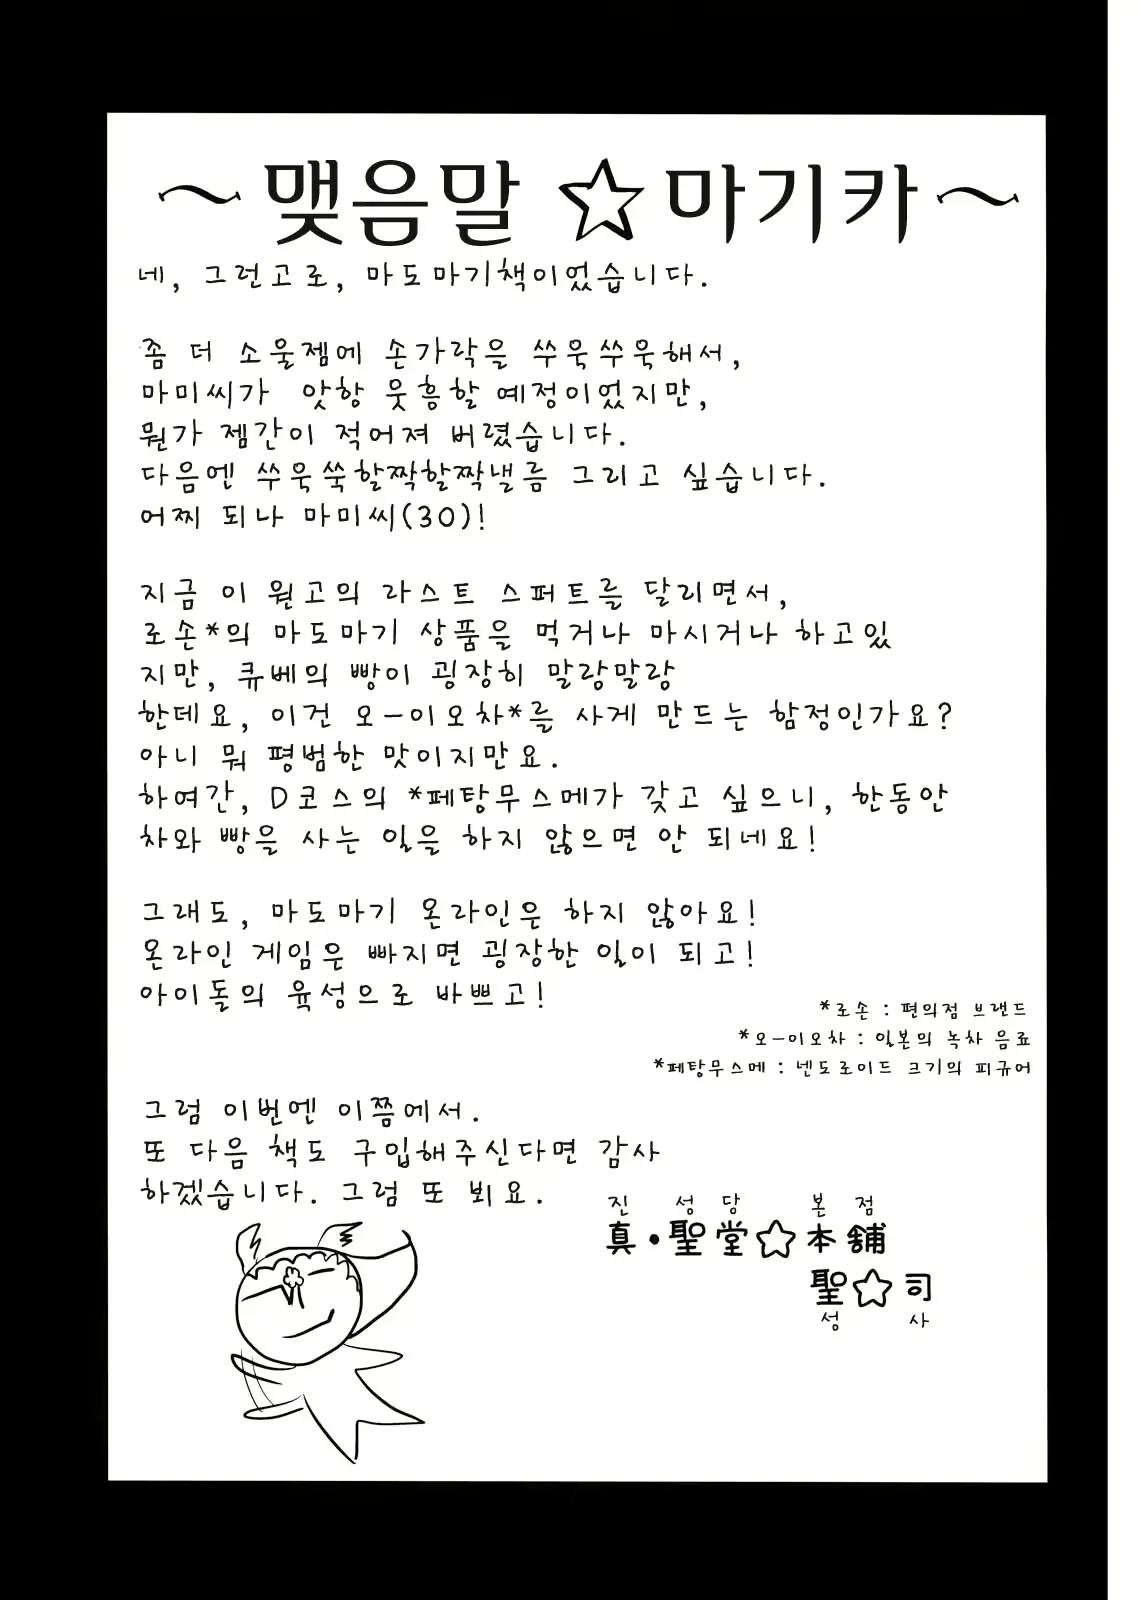 ~맺음말 ☆ 마기카~
네, 그런고로, 마도마기책이었습니다.
좀 더 소울젬에 손가락을 쑤욱쑤욱해서,
마미씨가 앗항 웃흥할 예정이었지만,
뭔가 젬간이 적어져 버렸습니다.
다음엔 쑤욱쑥할짝할짝낼름 그리고 싶습니다.
어찌 되나 마미씨(30)!
지금 이 원고의 라스트 스퍼트를 달리면서,
로손*의 마도마기 상품을 먹거나 마시거나 하고있
지만, 큐베의 빵이 굉장히 말랑말랑
한데요, 이건 오-이오차*를 사게 만드는 함정인가요?
아니 뭐 평범한 맛이지만요.
하여간, D코스의 *페탕무스메가 갖고 싶으니, 한동안
차와 빵을 사는 일을 하지 않으면 안 되네요!
그래도, 마도마기 온라인은 하지 않아요!
온라인 게임은 빠지면 굉장한 일이 되고!
아이돌의 육성으로 바쁘고!
*로손 : 편의점 브랜드
*오-이오차 : 일본의 녹차 음료
*페탕무스메 : 넨도로이드 크기의 피규어
그럼 이번엔 이쯤에서.
또 다음 책도 구입해주신다면 감사
하겠습니다. 그럼 또 뵈요.
진 성당 본점
真・聖堂☆本舗
聖☆司
성 사